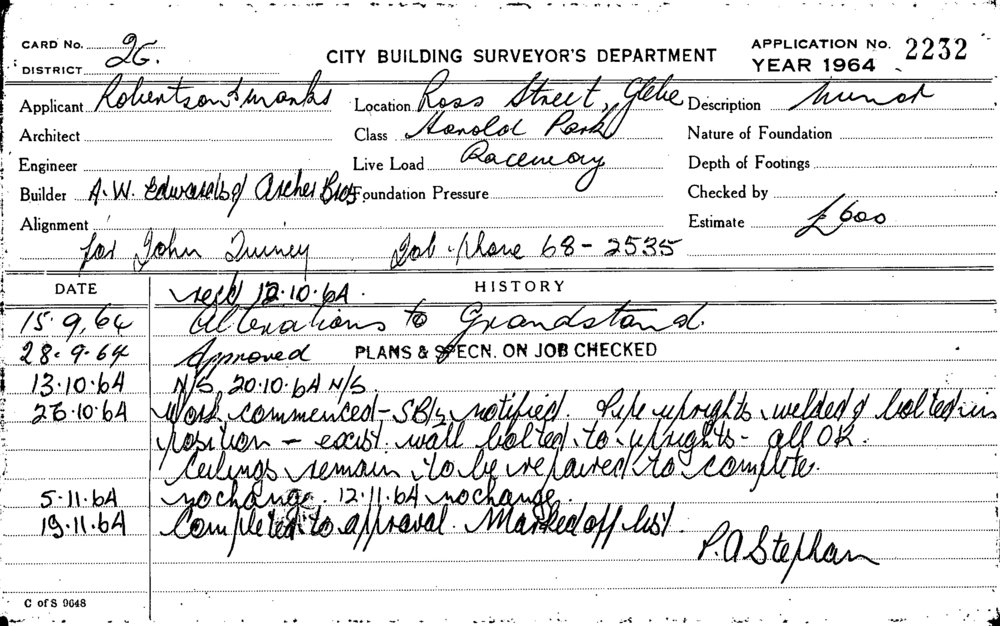 CARD No. 26. CITY BUILDING SURVEYOR'S DEPARTMENT APPLICATION No. 2232
DISTRICT YEAR 1964
Applicant Robertson & Marks Location Ross Street, Glebe Description Minor
Architect Class Harold Park Nature of Foundation
Engineer Live Load Raceway Depth of Footings
Builder A.W. Edwards & Archer Bros Foundation Pressure Checked by
Alignment Estimate £600
for John Quiney Job phone 68-2535
DATE HISTORY
rec'd 12.10.64.
15.9.64 Alterations to Grandstand.
28.9.64 Approved PLANS & SPECN. ON JOB CHECKED
13.10.64 N/S, 20.10.64 N/S.
26.10.64 Work commenced - notified. Pipe uprights welded & bolted in
position - exist. wall bolted to uprights - all OK.
Ceilings remain to be repaired to complete.
5.11.64 no change. 12.11.64 no change.
19.11.64 Completed to approval. Marked off list.
P.A Stephan
C of S 9648